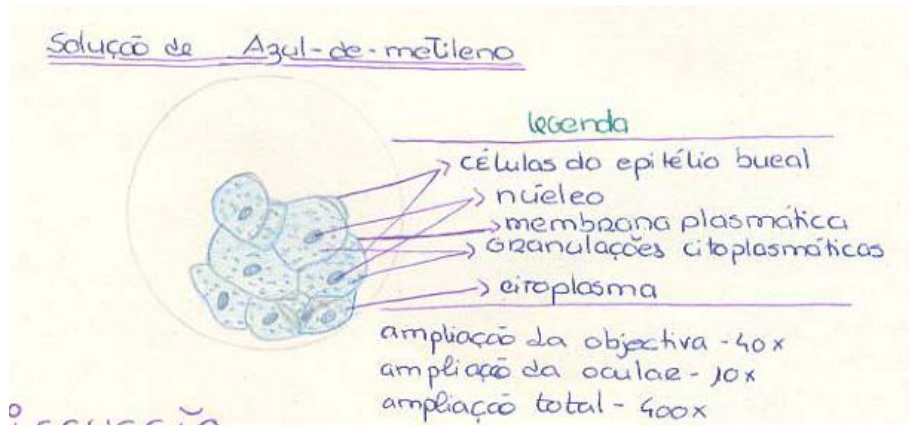 Solução de Azul-de-metileno
legenda
células do epitélio bucal
núcleo
membrana plasmática
Granulações citoplasmáticas
citoplasma
ampliação da objectiva - 40x
ampliação da ocular - 10x
ampliação total - 400x